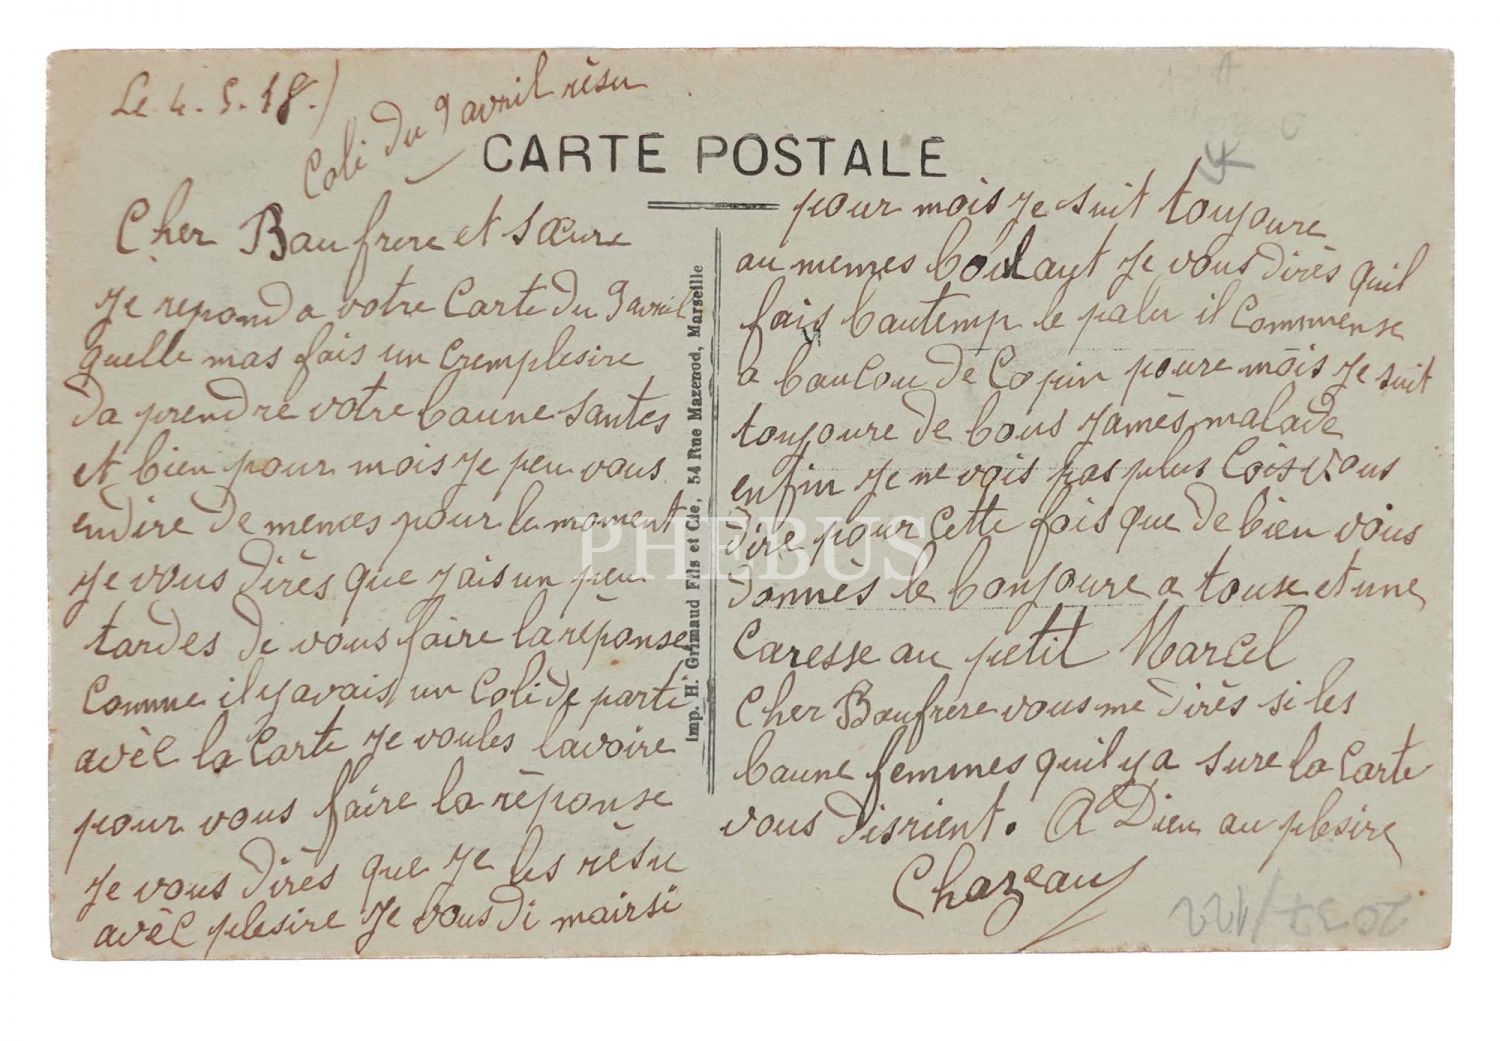 Le 4. 5. 18.
Coli du 9 avril résu
CARTE POSTALE
Cher Baufrère et Sœure
Je repond a votre Carte du 9 avril
quelle mas fais un Cremplesire
da prendre votre baune Santes
et bien pour mois Je peu vous
endire de memes pour le moment
Je vous dirès que Jais un peu
tardes de vous faire la réponse
Comme il y avais un Coli de parti
avèc la Carte Je voules lavoire
pour vous faire la réponse
Je vous dirès que Je les rèsu
avèc plesire Je vous di mairsi
Imp. H. Grimaud Fils et Cie, 54 Rue Mazenod, Marseille
pour mois Je suit toujoure
au memes Je vous dirès quil
fais bautemp le palu il Commense
a baucou de Copin poure mois Je suit
toujoure de bous Jamès malade
enfin Je ne vois pas plus Cois vous
dire pour Cette fois que de bien vous
donnès le bonjoure a touse et une
Caresse au petit Marcel
Cher Baufrère vous me dirès si les
baune femmes quil y a sure la Carte
vous disrient. A Dieu au plesire
Chazeau
2037/122
PHEBUS